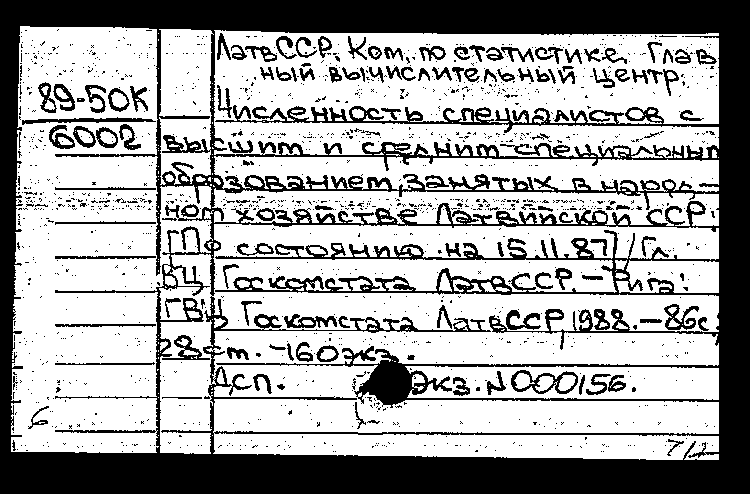 ЛатвССР. Ком. по статистике. Глав
ный вычислительный центр.
89-50К
6002
Численность специалистов с
высшим и средним специальным
образованием, занятых в народ-
ном хозяйстве Латвийской ССР:
[По состоянию на 15.11.87] / Гл.
ВЦ Госкомстата ЛатвССР. - Рига:
ГВЦ Госкомстата ЛатвССР, 1988. - 86с;
28см. - 160экз.
ДСП. Экз. N000156.
6